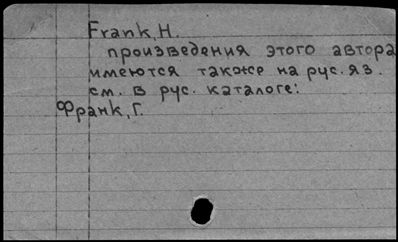 Frank, H.
произведения этого автора
имеются также на рус. яз.
см. в рус. каталоге:
Франк, Г.